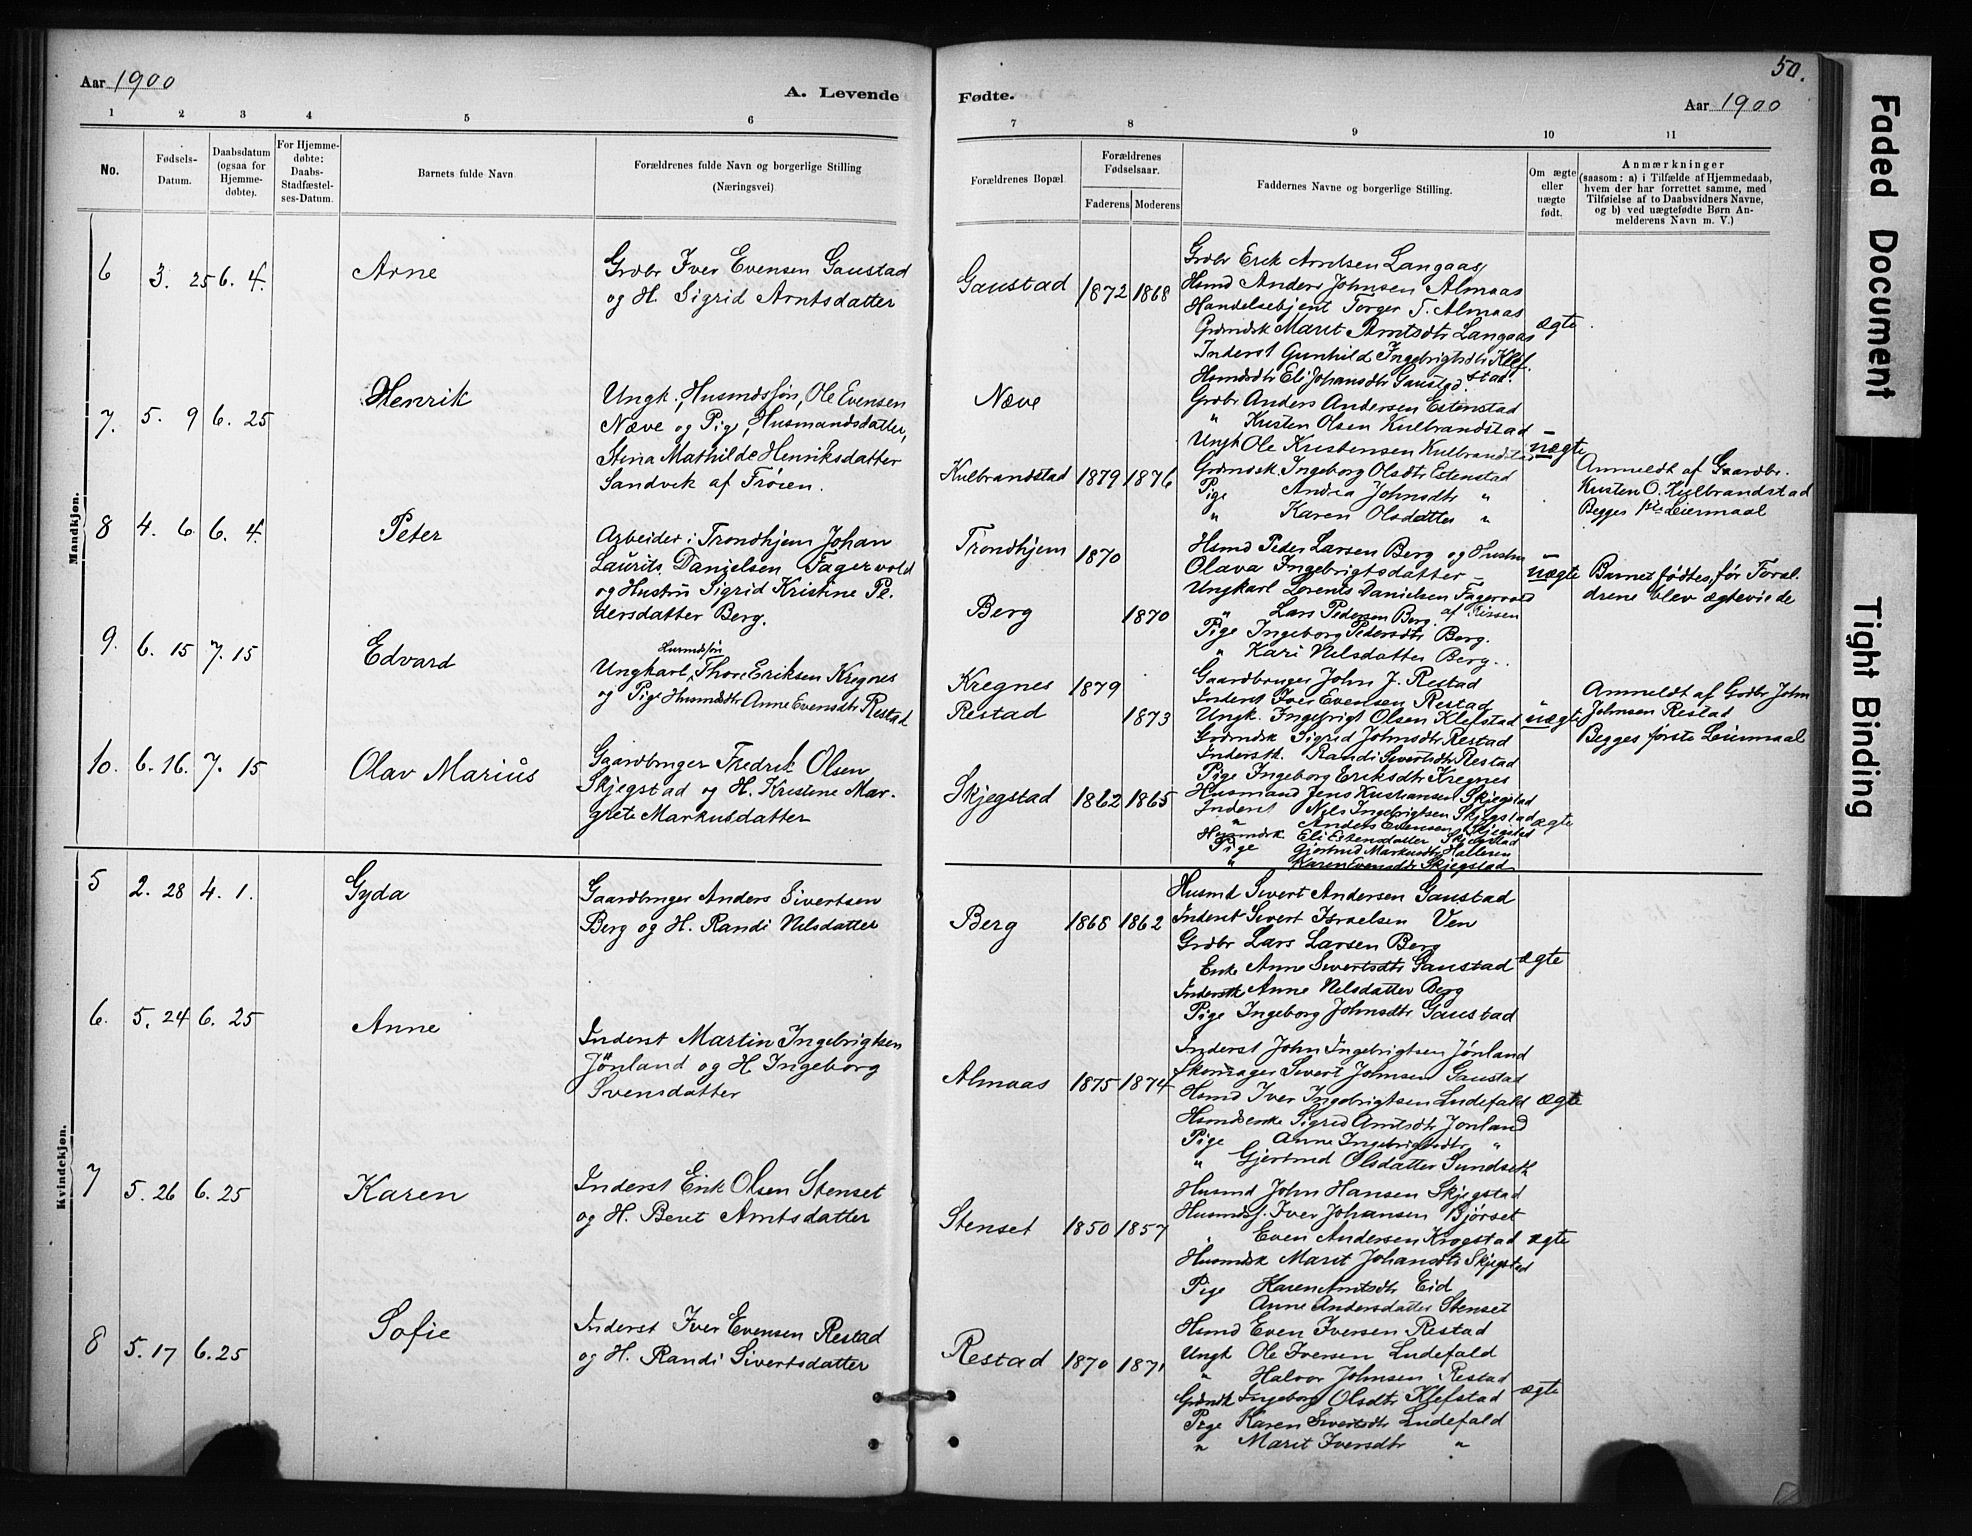 Aar 1900
A. Levende
1 2 3 4 5 6
No.
Fødsels-
Datum.
Daabsdatum
(ogsaa for
Hjemme-
døbte).
For Hjemme-
døbte:
Daabs-
Stadfæstel-
ses-Datum.
Barnets fulde Navn
Forældrenes fulde Navn og borgerlige Stilling
(Næringsvei)
Mandkjøn.
6 3. 25 6. 4. Arne
Grdbr Iver Evensen Gaustad
og H. Sigrid Arntsdatter
7. 5. 9 6. 25 Henrik
Ungk., Husmdsøn, Ole Evensen
Næve og Pige, Husmandsdatter,
Stena Mathilde Henriksdatter
Sandvik af Trøien.
8 4. 6 6. 4. Peter
Arbeider i Trondhjem Johan
Laurits Danielsen Fagervold
og Hustru Sigrid Kristine Pe-
dersdatter Berg.
9. 6. 15 7. 15 Edvard
Husmdsøn
Ungkarl, Thore Eriksen Kregnes
og Pige Husmdtr Anne Evensdtr Restad
10. 6. 16. 7. 15 Olav Marius
Gaardbruger Fredrik Olsen
Skjegstad og H. Kristine Mar-
grete Markusdatter
Kvindekjøn.
5 2. 28 4. 1. Gyda
Gaardbruger Anders Sivertsen
Berg og H. Randi Nilsdatter
6. 5. 24 6. 25 Anne
Inderst Martin Ingebrigtsen
Jønland og H. Ingeborg
Svensdatter
7 5. 26 6. 25 Karen
Inderst Erik Olsen Stenset
og H. Beret Arntsdatter
8 5. 17 6. 25 Sofie
Inderst Iver Evensen Restad
og H. Randi Sivertsdatter
50.
Fødte.
Aar 1900
7 8 9 10 11
Forældrenes Bopæl.
Forældrenes
Fødselsaar.
Faderens Moderens
Faddernes Navne og borgerlige Stilling.
Om ægte
eller
uægte
født.
Anmærkninger
(saasom: a) i Tilfælde af Hjemmedaab,
hvem der har forrettet samme, med
Tilføielse af to Daabsvidners Navne,
og b) ved uægtefødte Børn An-
melderens Navn m. V.)
Gaustad 1872 1868
Grdbr Erik Arntsen Langaas
Hsmd Anders Johnsen Almaas
Handelsbetjent Torger T. Almaas
Grdmdsk Marit Arntsdtr Langaas
Inderst Gunhild Ingebrigtsdtr Klef-
stad.
Hsmdsdtr Eli Johansdtr Gaustad
ægte
Næve
Kulbrandstad 1879 1876
Grdbr Anders Andersen Estenstad
" Kristen Olsen Kulbrandstad
Ungk Ole Kristensen Kulbrandstad
Grdmdsk. Ingeborg Olsdtr Estenstad
Pige Andrea Johnsdtr "
" Karen Olsdatter "
uægte
Anmeldt af Gaardbr.
Kristen O. Kulbrandstad
Begges 1ste Leiermaal
Trondhjem 1870
Berg 1870
Hsmd Peder Larsen Berg og Hustru
Olava Ingebrigtsdatter
Ungkarl Lorents Danielsen Fagervold
" Lars Pedersen Berg
Pige Ingeborg Pedersdtr Berg.
" Kari Nilsdatter Berg.
uægte
Barnet fødtes, før Foræl-
drene blev ægteviede
Kregnes 1879
Restad 1873
Gaardbruger John J. Restad
Inderst Iver Evensen Restad
Ungk. Ingebrigt Olsen Klefstad
Grdmdsk Sigrid Johnsdtr Restad
Inderstk. Randi Sivertsdtr Restad
Pige Ingeborg Eriksdtr Kregnes
uægte
Anmeldt af Grdbr John
Johnsen Restad
Begges første Leiermaal
Skjegstad 1862 1865
Husmand Jens Kristiansen Skjegstad
Inderst Nils Ingebrigtsen Skjegstad
" Anders Evensen Skjegstad
Husmdsk Eli Estensdatter Skjegstad
Pige Gjertrud Markusdtr Halleren
" Karen Evensdtr Skjegstad
ægte
Berg 1868 1862
Husmd Sivert Andersen Gaustad
Inderst Sivert Israelsen Ven
Grdbr Lars Larsen Berg
Enke Anne Sivertsdtr Gaustad
Inderstk Anne Nilsdatter Berg
Pige Ingeborg Johnsdtr Gaustad
ægte
Almaas 1875 1874
Inderst John Ingebrigtsen Jønland
Skomager Sivert Johnsen Gaustad
Hsmd Iver Ingebrigtsen Ludefald
Hsmdsenke Sigrid Arntsdtr Jønland
Pige Anne Ingebrigtsdtr "
" Gjertrud Olsdatter Sundseth
ægte
Stenset 1850 1857
Husmd John Hansen Skjegstad
Husmdsj. Iver Johansen Bjørset
" Even Andersen Krogstad
Husmdsk Marit Johansdtr Skjegstad
Pige Karen Arntsdtr Eid
Anne Andersdatter Stenset
ægte
Restad 1870 1871
Hsmd Even Iversen Restad
Ungk Ole Iversen Ludefald
" Halvor Johnsen Restad
Grdmdk Ingeborg Olsdtr Klefstad
Pige Karen Sivertsdtr Ludefald
" Marit Iversdtr "
ægte
Faded Document
Tight Binding